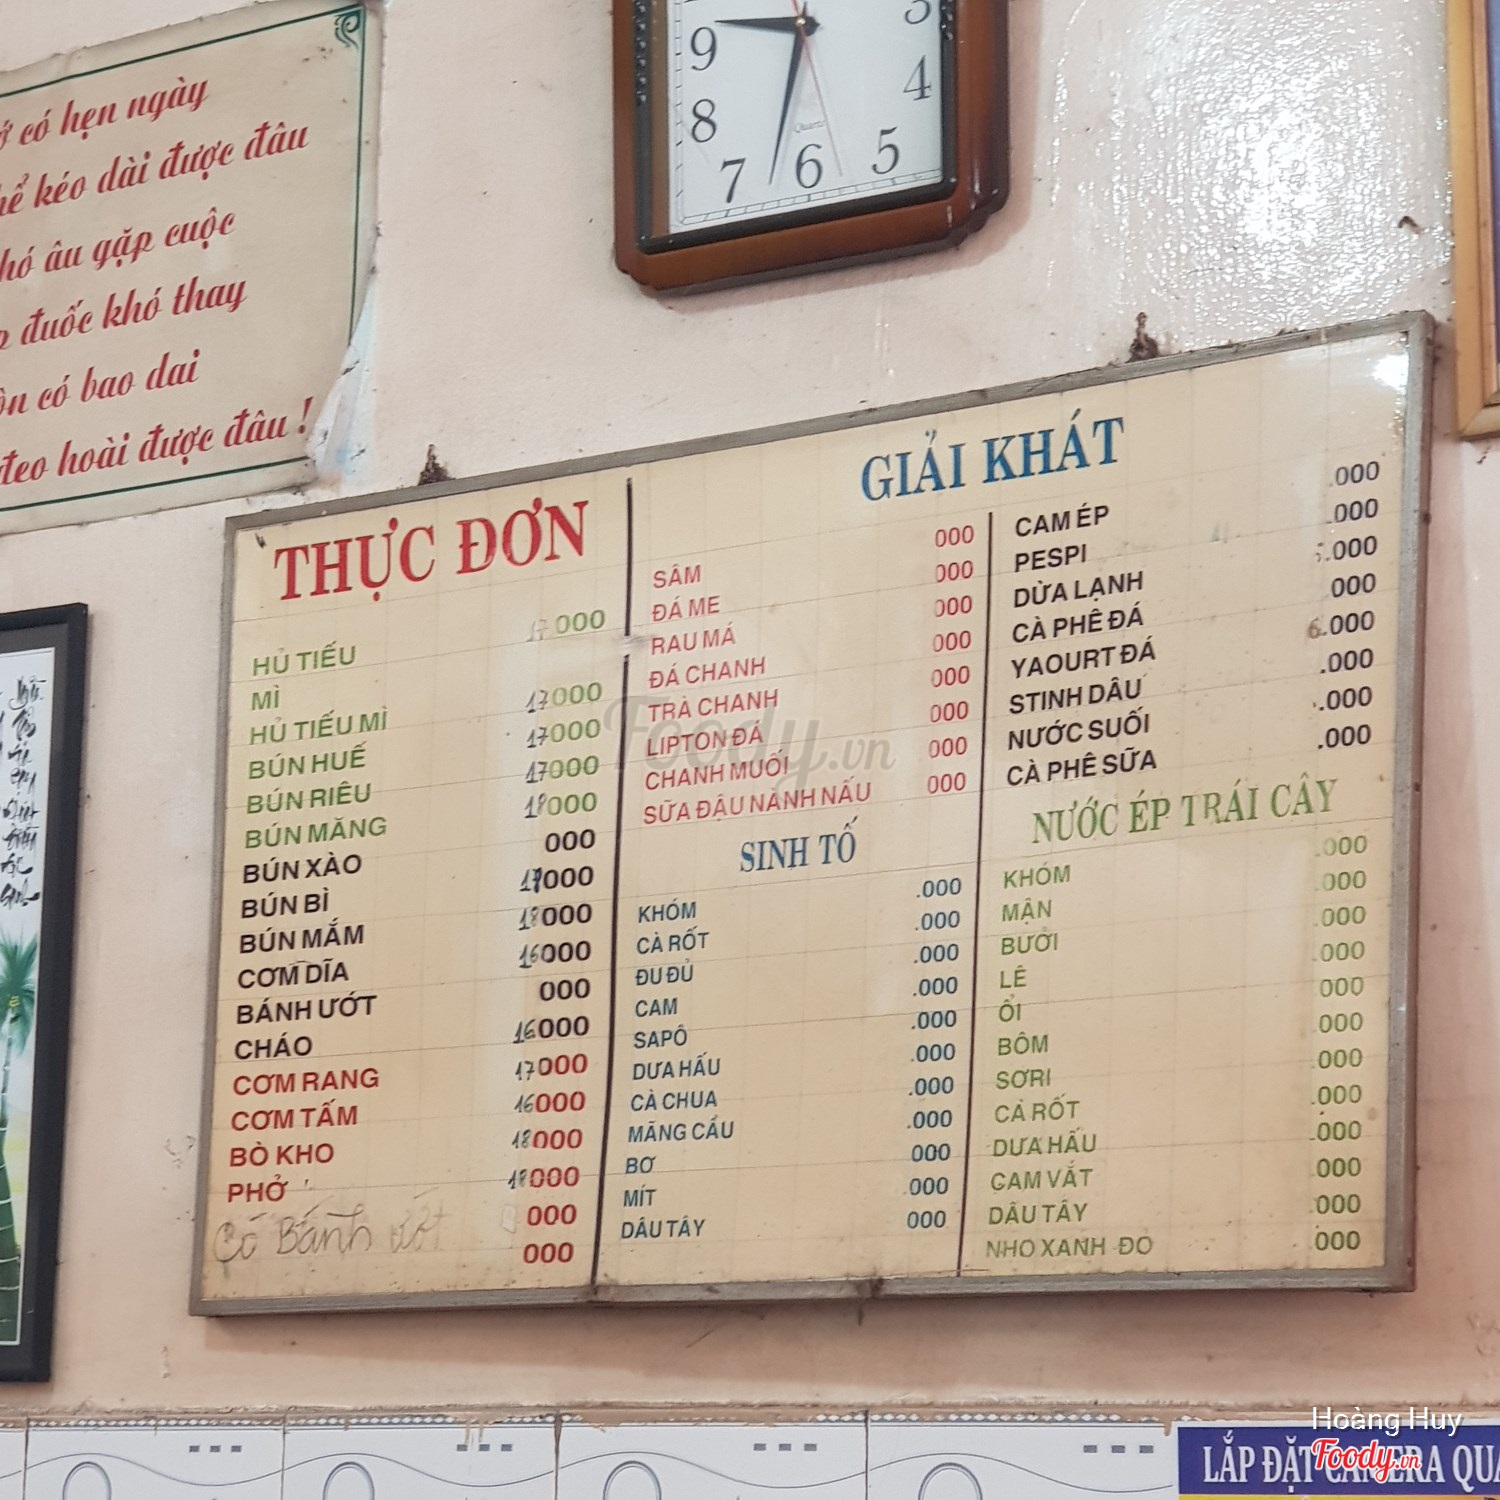 có hẹn ngày
kéo dài được đâu
âu gặp cuộc
đuốc khó thay
có bao dai
đeo hoài được đâu !
9
8
7
6
5
4
3
Quartz
THỰC ĐƠN
HỦ TIẾU 17000
MÌ 17000
HỦ TIẾU MÌ 17000
BÚN HUẾ 17000
BÚN RIÊU 18000
BÚN MĂNG 000
BÚN XÀO 000
BÚN BÌ 18000
BÚN MẮM 16000
CƠM DĨA 000
BÁNH ƯỚT 16000
CHÁO 17000
CƠM RANG 16000
CƠM TẤM 18000
BÒ KHO 18000
PHỞ 000
Có Bánh ướt 000
GIẢI KHÁT
SÂM 000
ĐÁ ME 000
RAU MÁ 000
ĐÁ CHANH 000
TRÀ CHANH 000
LIPTON ĐÁ 000
CHANH MUỐI 000
SỮA ĐẬU NÀNH NẤU 000
SINH TỐ
KHÓM .000
CÀ RỐT .000
ĐU ĐỦ .000
CAM .000
SAPÔ .000
DƯA HẤU .000
CÀ CHUA .000
MÃNG CẦU .000
BƠ 000
MÍT .000
DÂU TÂY 000
CAM ÉP .000
PESPI .000
DỪA LẠNH .000
CÀ PHÊ ĐÁ 000
YAOURT ĐÁ 6.000
STINH DÂU .000
NƯỚC SUỐI .000
CÀ PHÊ SỮA .000
NƯỚC ÉP TRÁI CÂY
KHÓM .000
MẬN .000
BƯỞI .000
LÊ .000
ỔI 000
BÔM .000
SƠRI .000
CÀ RỐT .000
DƯA HẤU .000
CAM VẮT .000
DÂU TÂY .000
NHO XANH ĐỎ 000
Foody.vn
LẮP ĐẶT CAMERA QUA
Hoàng Huy
Foody.vn